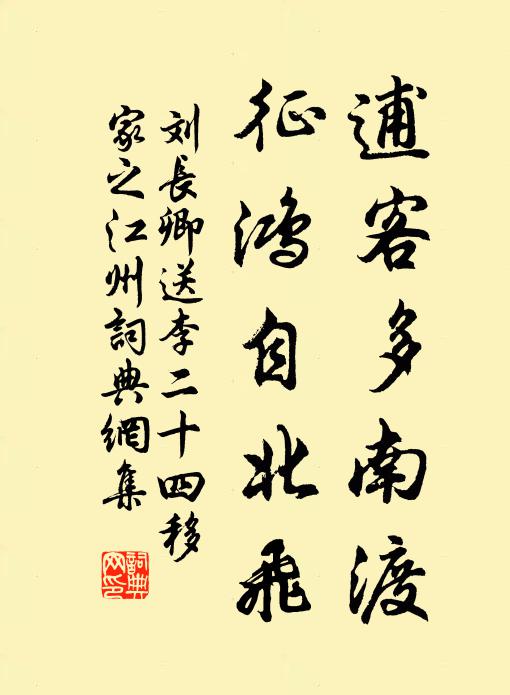 逋客多南渡
征鸿自北飛
刘長卿送李二十四移
家之江州詞典網集
詞典網印